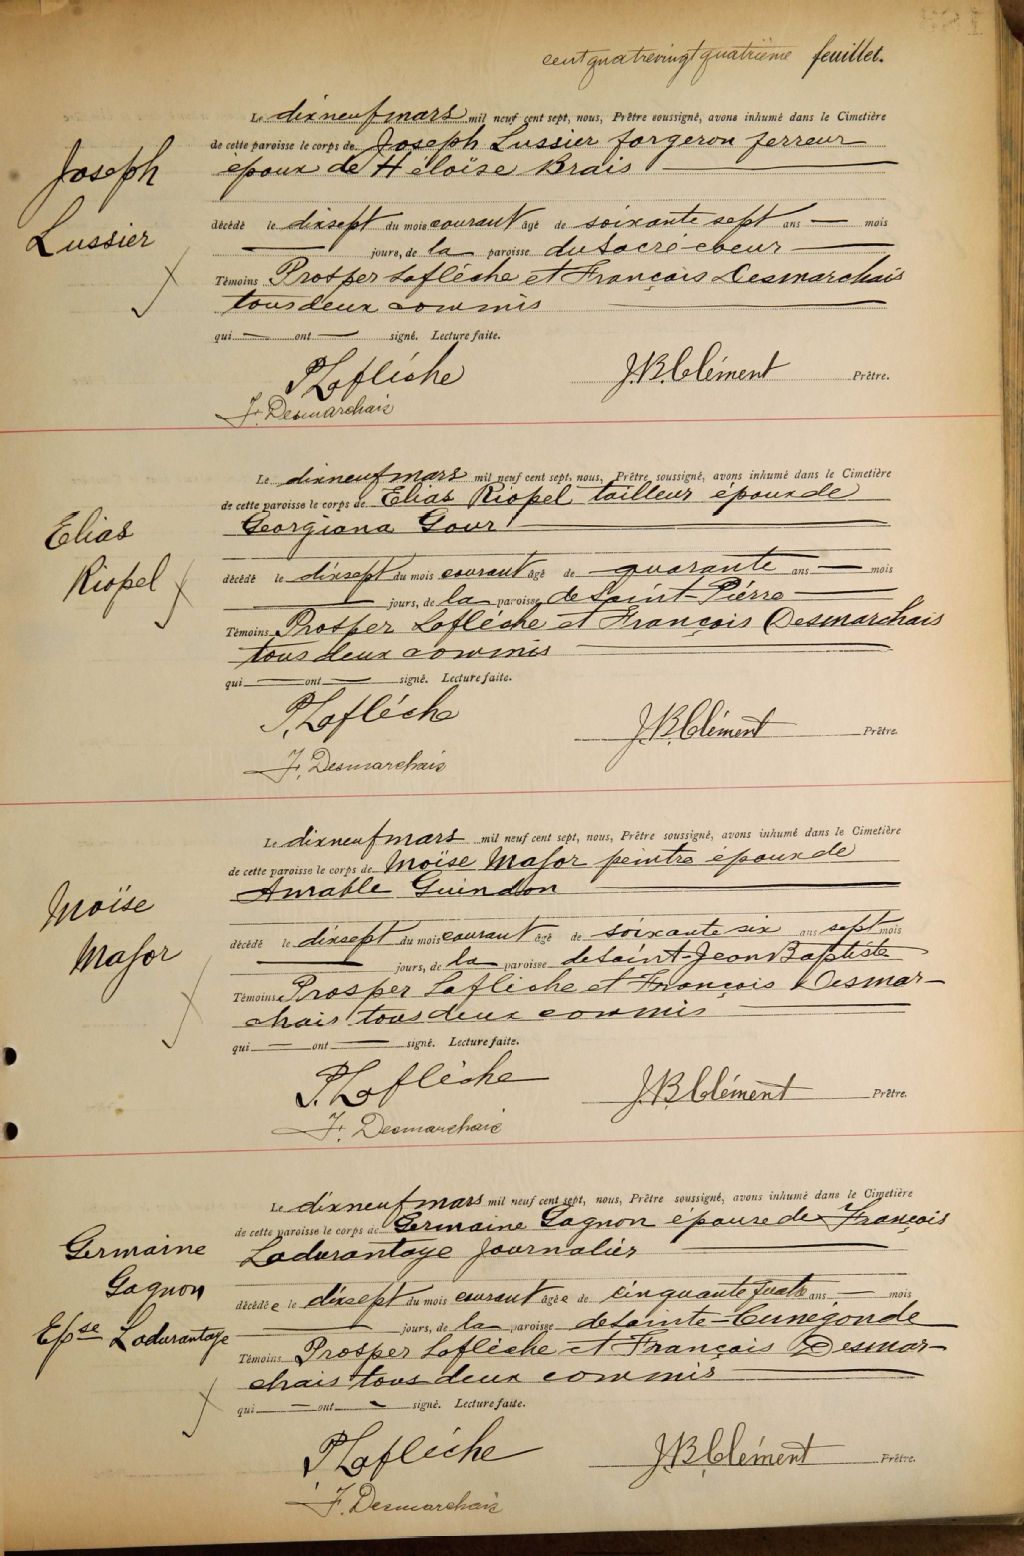 cent quatrevingt quatrième feuillet.
Le dix neuf mars mil neuf cent sept, nous, Prêtre soussigné, avons inhumé dans le Cimetière
de cette paroisse le corps de Joseph Lussier forgeron ferreur
époux de Héloïse Brais
Joseph
Lussier
décédé le dixsept du mois courant âgé de soixante sept ans — mois
— jours, de la paroisse du Sacré-coeur
Témoins Prosper Laflèche et François Desmarchais
tous deux commis
qui — ont — signé. Lecture faite.
P. Laflèche J.B. Clément Prêtre.
F. Desmarchais
Le dix neuf mars mil neuf cent sept, nous, Prêtre soussigné, avons inhumé dans le Cimetière
de cette paroisse le corps de Elias Riopel tailleur époux de
Georgiana Gour
Elias
Riopel
décédé le dixsept du mois courant âgé de quarante ans — mois
— jours, de la paroisse de Saint-Pierre
Témoins Prosper Laflèche et François Desmarchais
tous deux commis
qui — ont — signé. Lecture faite.
P. Laflèche J.B. Clément Prêtre.
F. Desmarchais
Le dix neuf mars mil neuf cent sept, nous, Prêtre soussigné, avons inhumé dans le Cimetière
de cette paroisse le corps de Moïse Major peintre époux de
Amable Guindon
Moïse
Major
décédé le dixsept du mois courant âgé de soixante six ans sept mois
— jours, de la paroisse de Saint-Jean Baptiste
Témoins Prosper Laflèche et François Desmar-
chais tous deux commis
qui — ont — signé. Lecture faite.
P. Laflèche J.B. Clément Prêtre.
F. Desmarchais
Le dix neuf mars mil neuf cent sept, nous, Prêtre soussigné, avons inhumé dans le Cimetière
de cette paroisse le corps de Germaine Gagnon épouse de François
Ladurantaye journalier
Germaine
Gagnon
Epse Ladurantaye
décédée le dixsept du mois courant âgée de cinquante quatre ans — mois
— jours, de la paroisse de Sainte-Cunégonde
Témoins Prosper Laflèche et François Desmar-
chais tous deux commis
qui — ont — signé. Lecture faite.
P. Laflèche J.B. Clément Prêtre.
F. Desmarchais